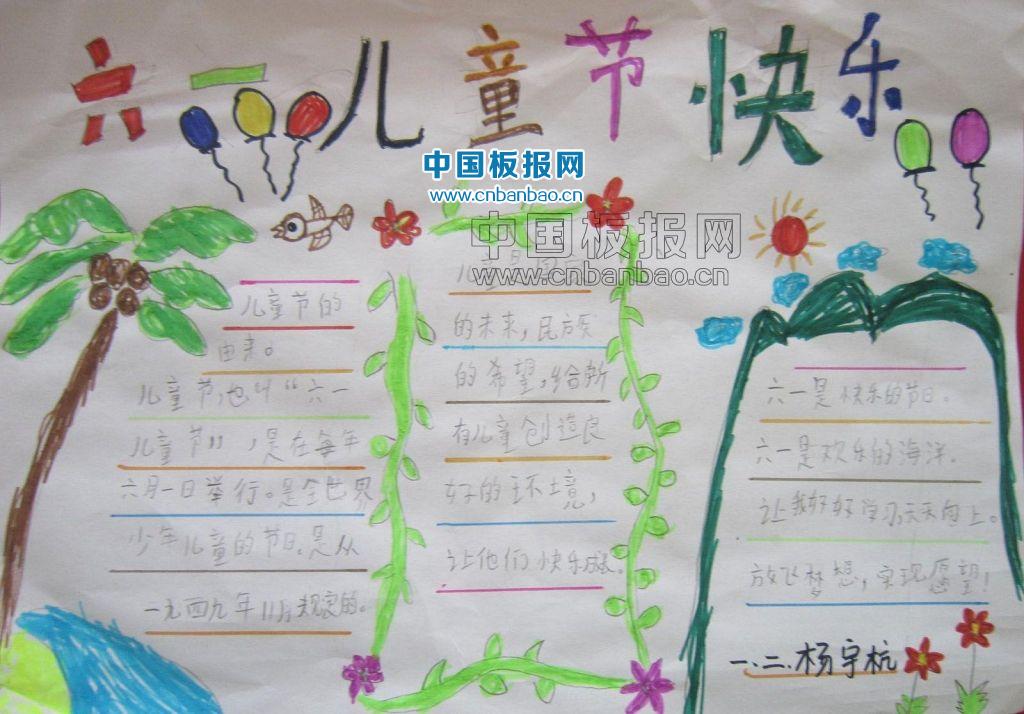 六一儿童节快乐
中国板报网
www.cnbanbao.cn
中国板报网
www.cnbanbao.cn
儿童节的
由来。
儿童节,也叫“六一
儿童节”,是在每年
六月一日举行。是全世界
少年儿童的节日,是从
一九四九年11月规定的。
儿童是
的未来,民族
的希望,给所
有儿童创造良
好的环境,
让他们快乐成长。
六一是快乐的节日。
六一是欢乐的海洋。
让我好好学习天天向上。
放飞梦想,实现愿望!
一.二.杨宇杭